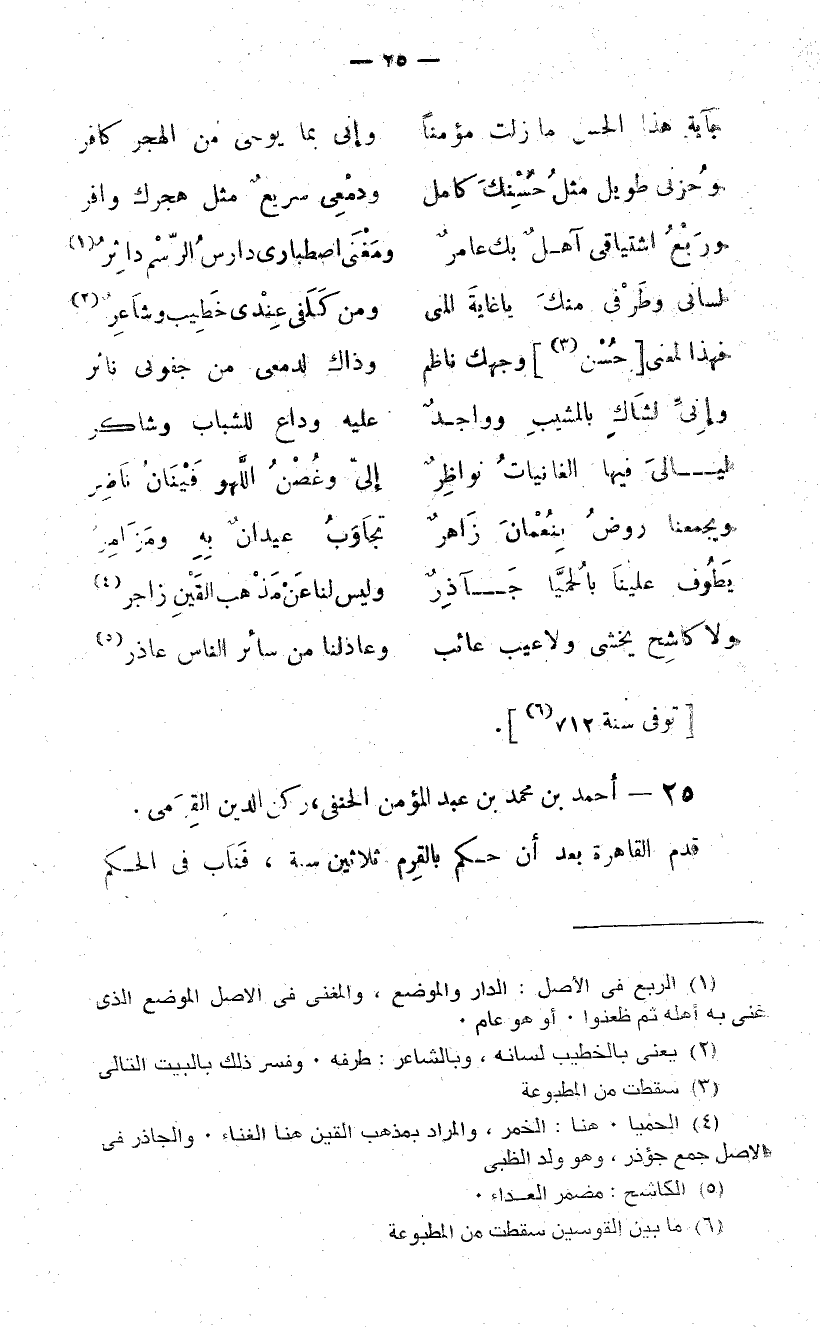 — ٢٥ —
بآية هذا الحسن ما زلت مؤمناً وإنى بما يوحى من الهجر كافر
وحُزنى طويل مثلُ حُسْنِكَ كامل ودمْعِى سريعٌ مثل هجرك وافر
ورَبْعُ اشتياقى آهلٌ بك عامرٌ ومَغْنَى اصطبارى دارسُ الرّسْم داثرُ(١)
لسانى وطَرْفى منكَ ياغايةَ المنى ومن كَلَفى عِنْدى خَطِيب وشاعِرُ(٢)
فهذا لمعنى [حُسْن(٣)] وجهك ناظم وذاك لدمعى من جفونى ناثر
وإنِىِّ لشَاكٍ بالمشيبِ وواجدٌ عليه وداع للشباب وشاكر
ليالىَ فيها الغانياتُ نواظِرٌ إلىّ وغُصْنُ اللَّهو فَيْنَانُ نَاضِر
ويجمعنا روضُ بِنُعْمانَ زَاهرٌ تجاوَبُ عيدانٌ بِهِ ومَزَامِرُ
يَطُوف علينَا بالحُميَّا جَآذِرٌ وليس لنا عَنْ مَذْهب القَيْنِ زاجر(٤)
ولا كاشِح يخشى ولاعيب عائب وعاذلنا من سائر الناس عاذر(٥)
[توفى سنة ٧١٢(٦)].
٢٥ — أحمد بن محمد بن عبد المؤمن الحنفى، ركن الدين القِرَمى.
قدم القاهرة بعد أن حكم بالقِرم ثلاثين سنة ، فَنَاب فى الحكم
(١) الربع فى الأصل : الدار والموضع ، والمغنى فى الاصل الموضع الذى
غنى به أهله ثم ظعنوا ٠ أو هو عام ٠
(٢) يعنى بالخطيب لسانه ، وبالشاعر : طرفه ٠ وفسر ذلك بالبيت التالى
(٣) سقطت من المطبوعة
(٤) الحميا ٠ هنا : الخمر ، والمراد بمذهب القين هنا الغناء ٠ والجاذر فى
الاصل جمع جؤذر ، وهو ولد الظبى
(٥) الكاشح : مضمر العداء ٠
(٦) ما بين القوسين سقطت من المطبوعة